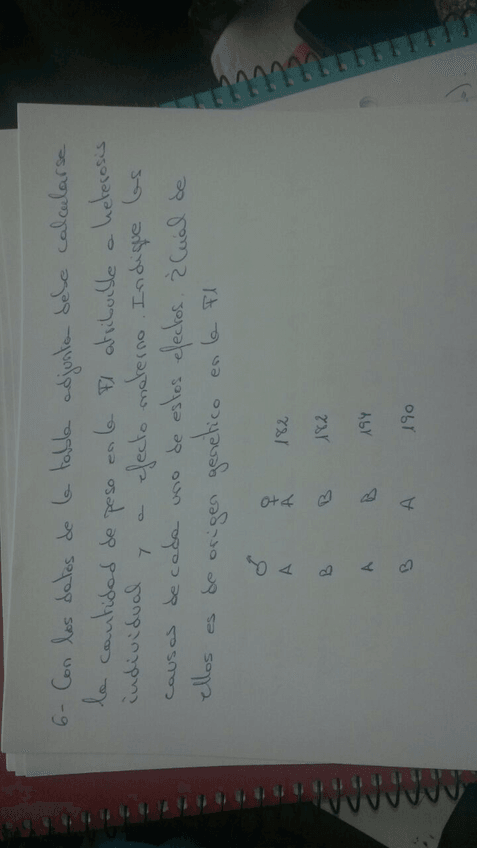 6- Con los datos de la tabla adjunta debe calcularse
la cantidad de peso en la F1 atribuible a heterosis
individual y a efecto materno. Indique las
causas de cada uno de estos efectos. ¿Cuál de
ellos es de origen genetico en la F1
♂ ♀
A A 182
B B 182
A B 194
B A 190